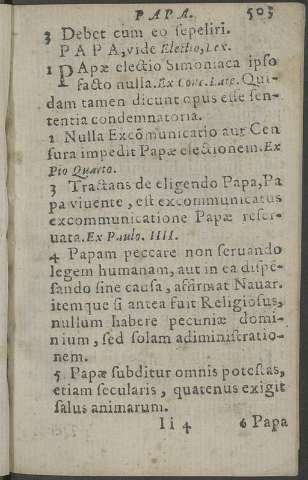 PAPA. 503
3 Debet cum eo sepeliri.
PAPA, vide Electio, Lex.
1 PApæ electio Simoniaca ipso
facto nulla. Ex Conc. Late. Qui-
dam tamen dicunt opus esse sen-
tentia condemnatoria.
2 Nulla Excõmunicatio aut Cen
sura impedit Papæ electionem. Ex
Pio Quarto.
3 Tractans de eligendo Papa, Pa
pa viuente, est excommunicatus
excommunicatione Papæ reser-
uata. Ex Paulo. IIII.
4 Papam peccare non seruando
legem humanam, aut in ea dispẽ-
sando sine causa, affirmat Nauar.
itemque si antea fuit Religiosus,
nullum habere pecuniæ domi-
nium, sed solam adiministratio-
nem.
5. Papæ subditur omnis potestas,
etiam secularis, quatenus exigit
salus animarum.
Ii 4 6 Papa